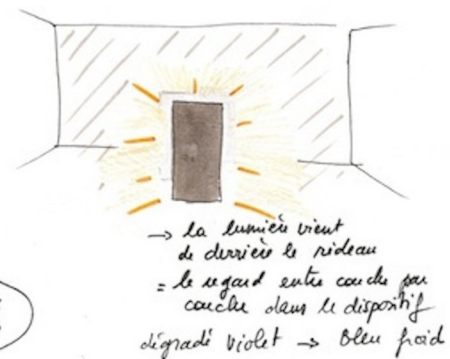 → la lumière vient
de derrière le rideau
= le regard entre couche par
couche dans le dispositif
dégradé violet → Bleu froid